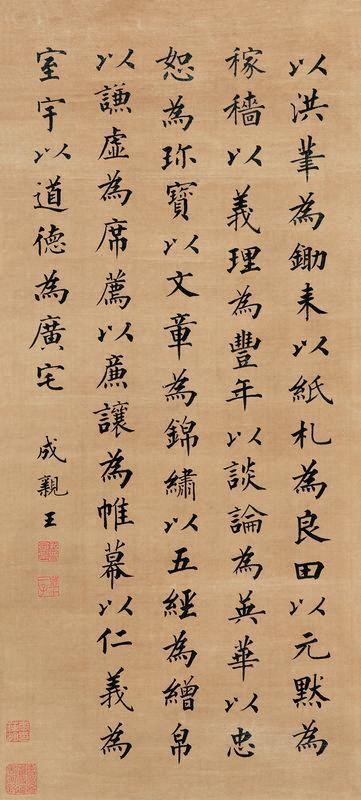 以洪筆為鋤耒以紙札為良田以元默為
稼穡以義理為豐年以談論為英華以忠
恕為珎寶以文章為錦繡以五經為繒帛
以謙虛為席薦以亷讓為帷幕以仁義為
室宇以道德為廣宅
成親王